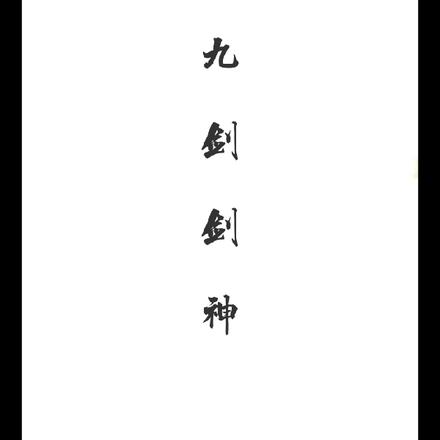 九剑剑神